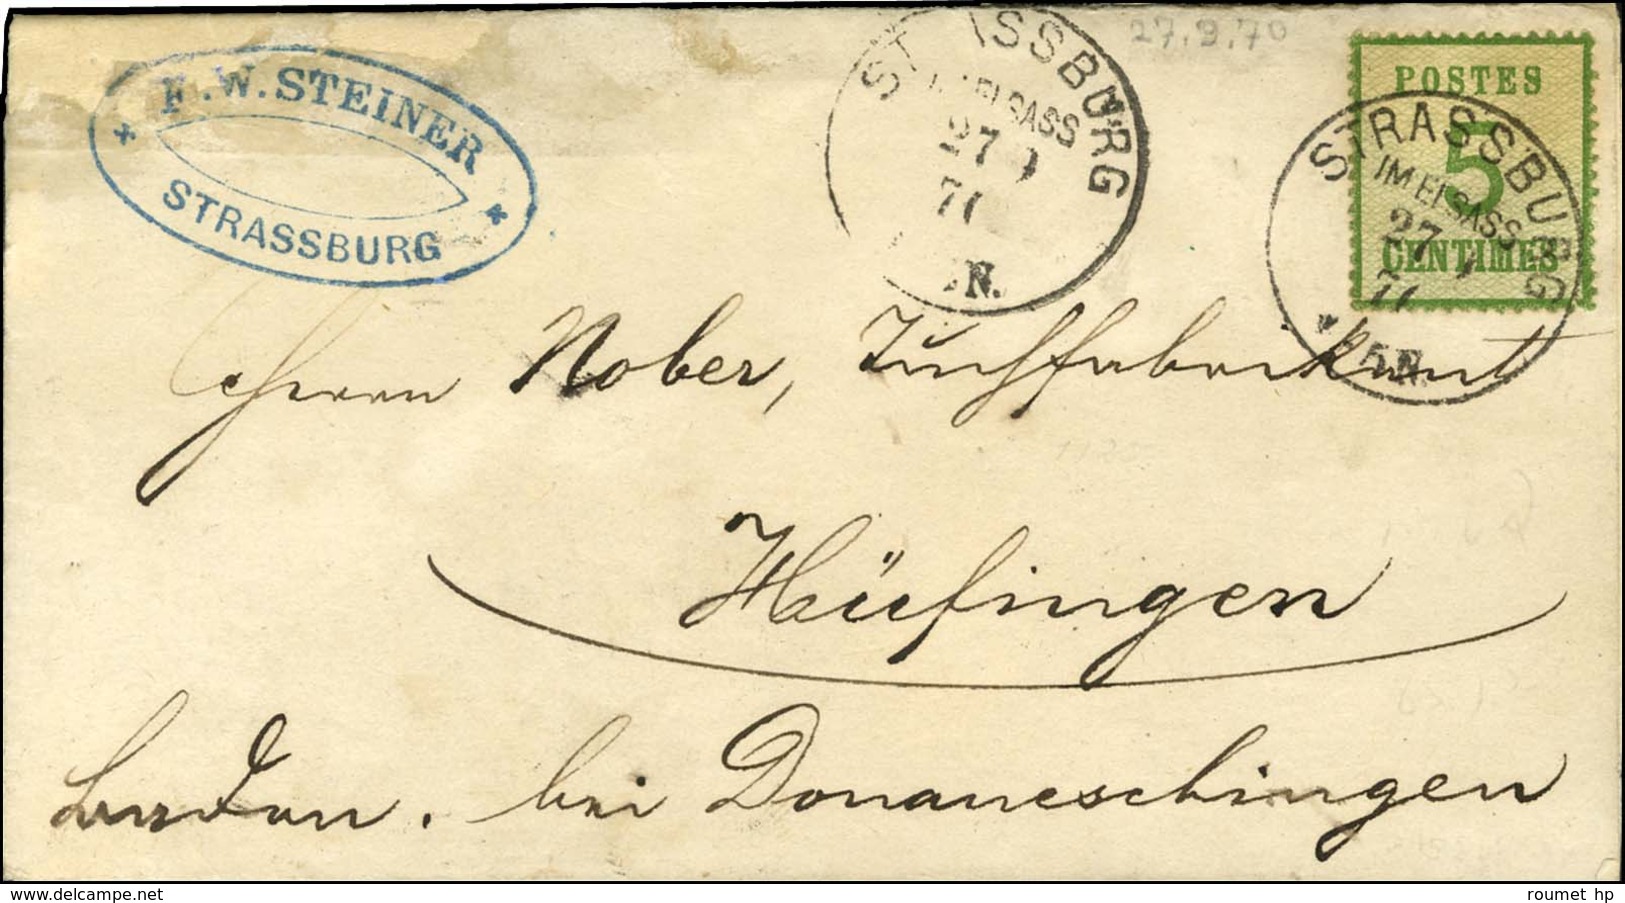 27.9.70
F. W. STEINER
STRASSBURG
STRASSBURG
IM ELSASS
27 9
71
N.
POSTES
5
CENTIMES
STRASSBURG
IM ELSASS
27 9
71
5 N.
Herrn Nober, Tuchfabrikant
Hüfingen
Baden. bei Donaueschingen
© www.delcampe.net
roumet hp